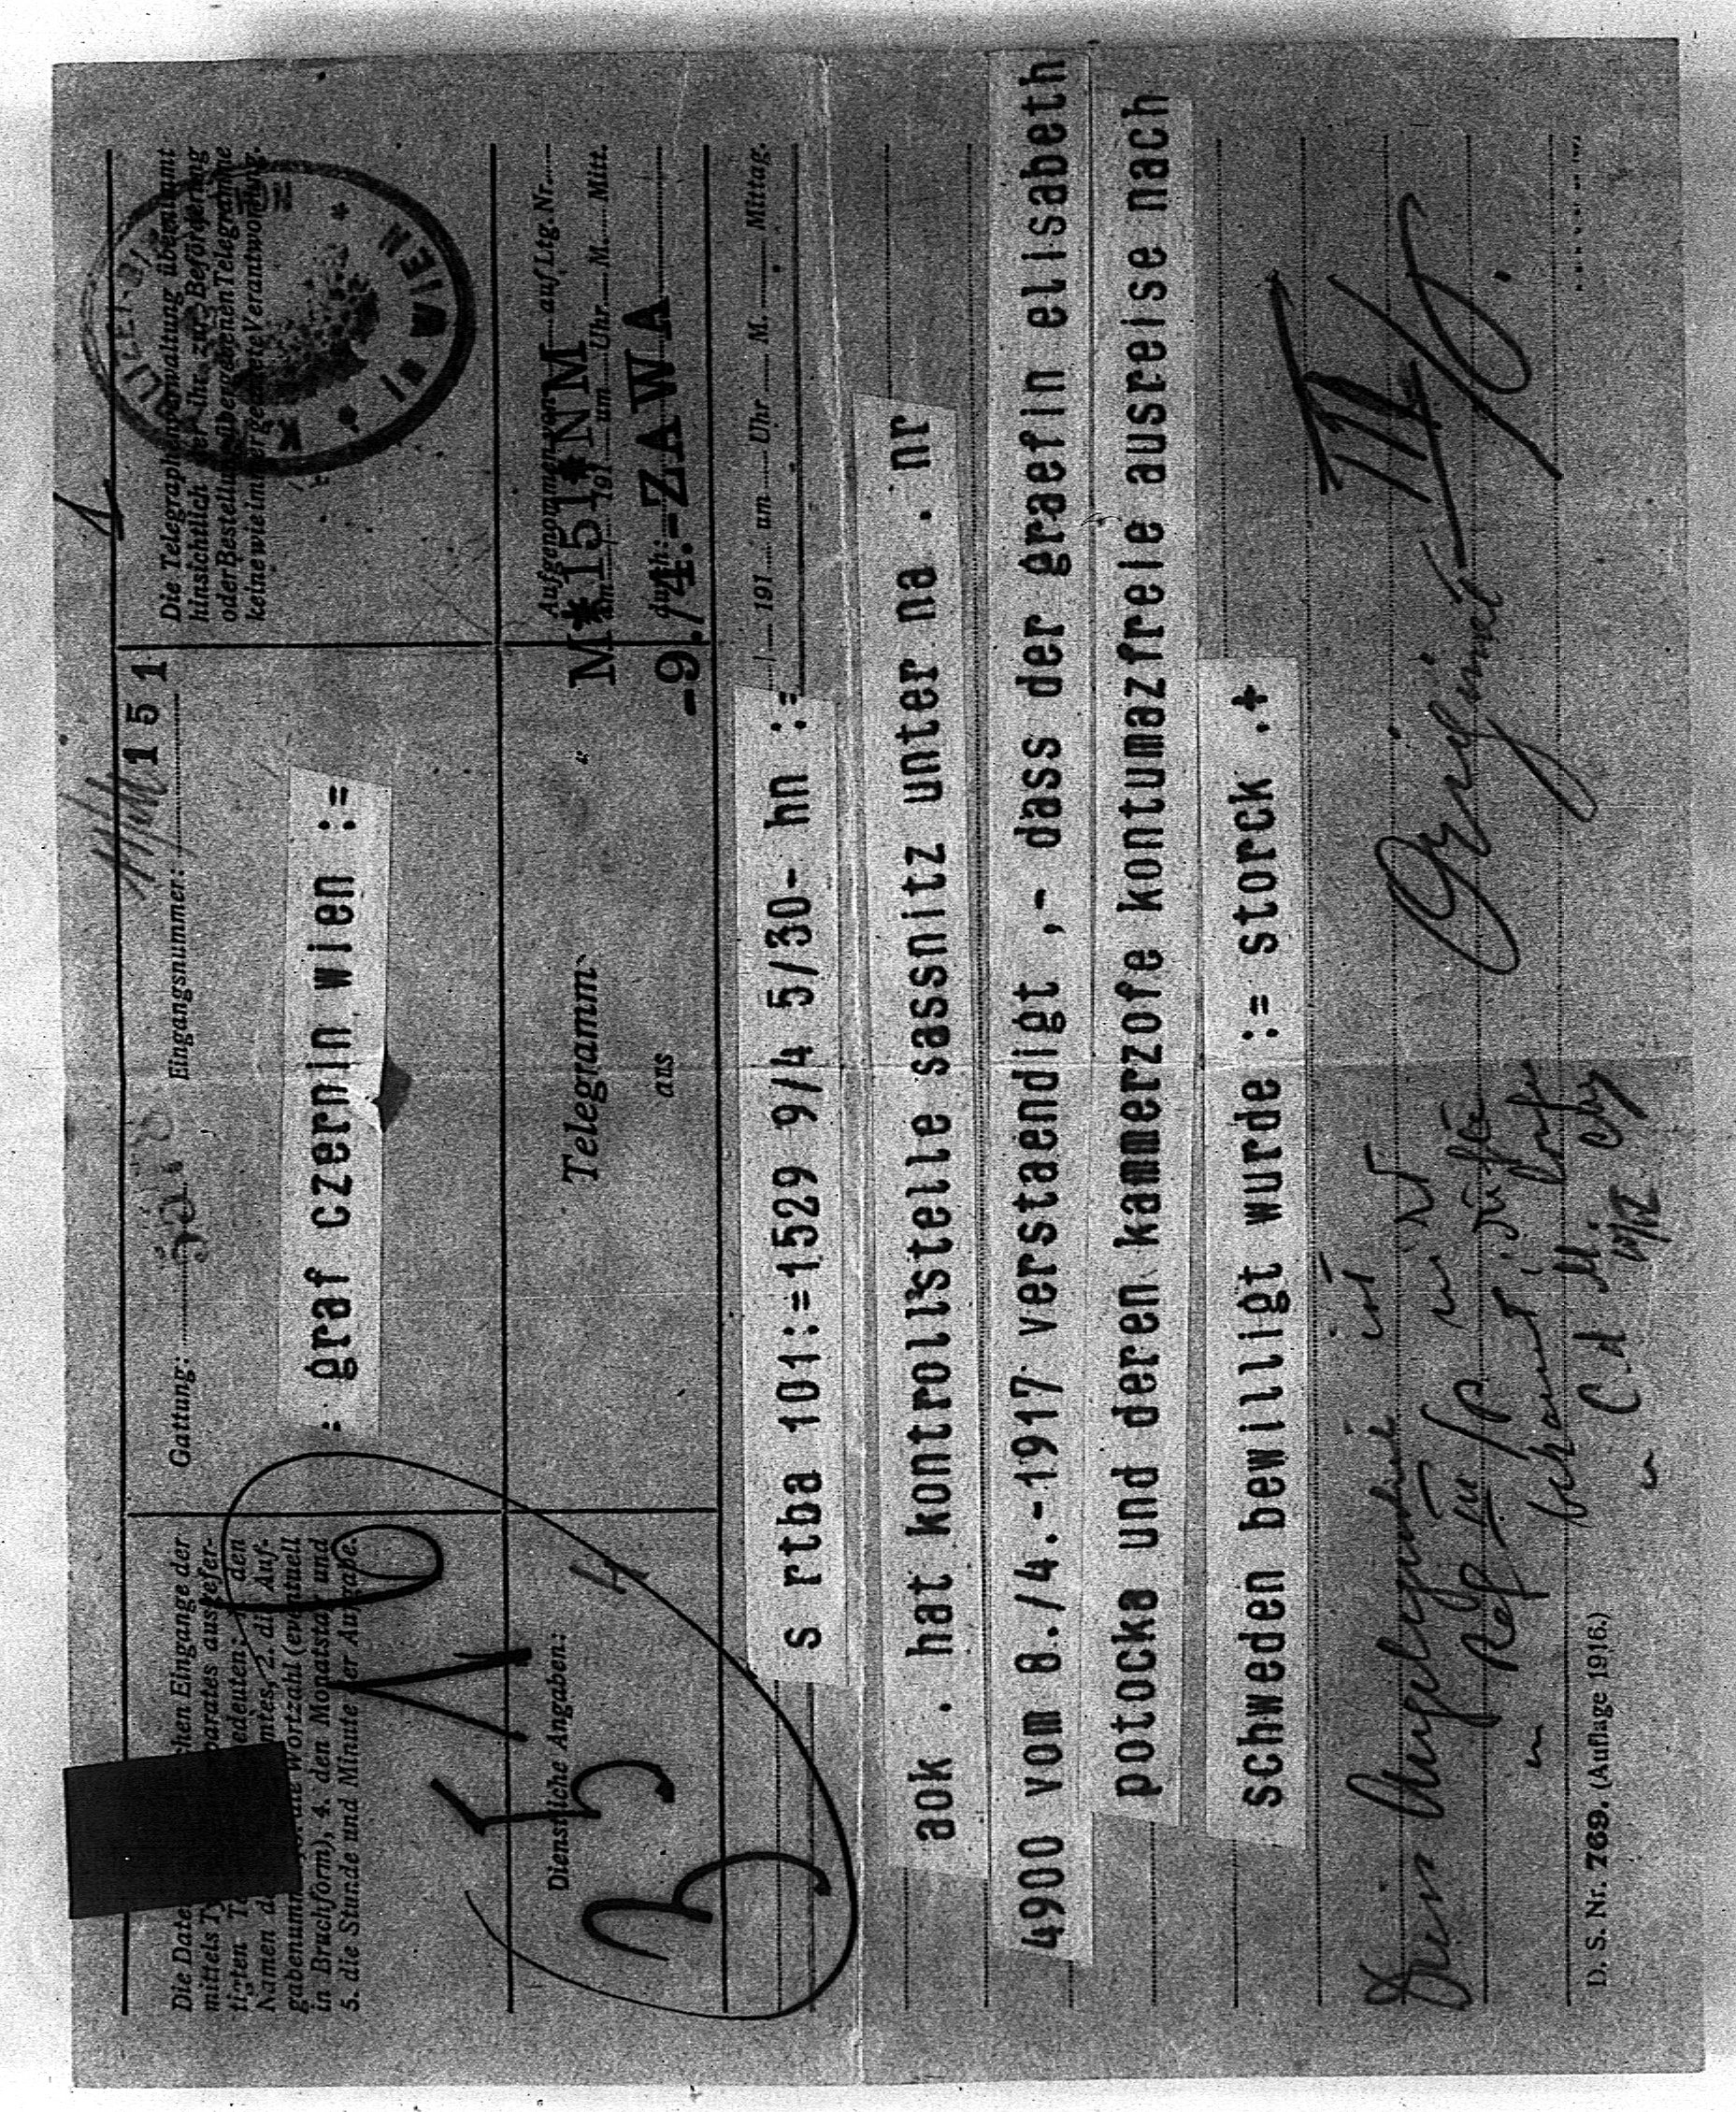 1
Die Date chen Eingange der
mittels Ty parates ausgefer-
tigten Te edeuten: den
Namen d mtes, 2. die Auf-
gabenumm die Wortzahl (eventuell
in Bruchform), 4. den Monatstag und
5. die Stunde und Minute der Aufgabe.
Gattung:
Eingangsnummer:
151
Die Telegraphenverwaltung übernimmt
hinsichtlich der ihr zur Beförderung
oder Bestellung übergebenen Telegramme
keine wie immer geartete Verantwortung.
WIEN
: graf czernin wien :=
Dienstliche Angaben:
Telegramm
aus
Aufgenommen von auf Ltg. Nr.
am 191 um Uhr M. Mitt.
durch:
M*151*NM
-9./4.-ZAWA
/ 191 um Uhr M. Mittag.
s rtba 101:=1529 9/4 5/30- hn :=
aok . hat kontrollstelle sassnitz unter na . nr
4900 vom 8./4.-1917 verstaendigt ,- dass der graefin elisabeth
potocka und deren kammerzofe kontumazfreie ausreise nach
schweden bewilligt wurde := storck .+
Diese Angelegenheit ist
bekannt
C. d. M.
D. S. Nr. 769. (Auflage 1916.)